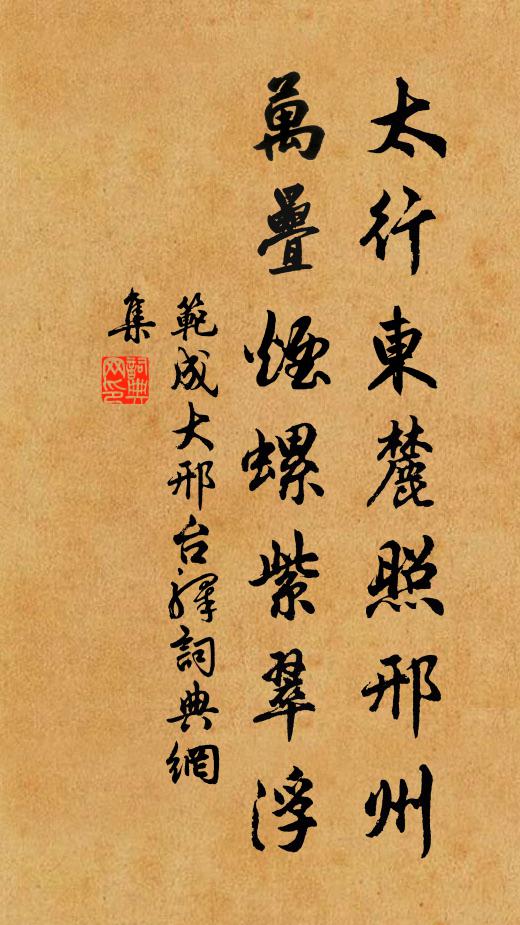 太行東麓照邢州
萬疊煙螺紫翠浮
範成大邢台驛詞典網
集
詞典
网印